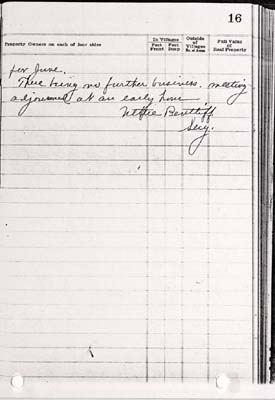 16
Property Owners on each of four sides
In Villages
Feet Front
Feet Deep
Outside of Villages
No. of Acres
Full Value of Real Property
for June.
There being no further business, meeting
adjourned at an early hour.
Nettie
Secy.